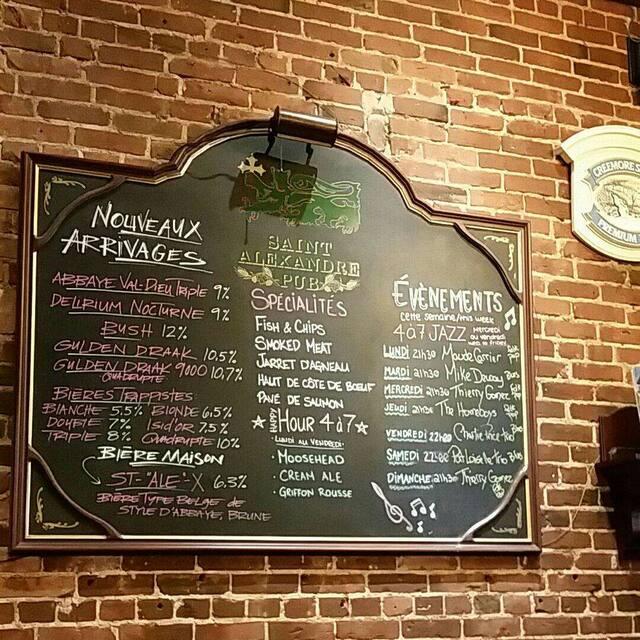 NOUVEAUX
ARRIVAGES
ABBAYE VAL-DIEU TRIPLE 9%
DELIRIUM NOCTURNE 9%
BUSH 12%
GULDEN DRAAK 10.5%
GULDEN DRAAK 9000 10.7%
QUADRUPLE
BIÈRES TRAPPISTES
BLANCHE 5.5% BLONDE 6,5%
DOUBLE 7% ISID'OR 7.5%
TRIPLE 8% QUADRUPLE 10%
BIÈRE MAISON
ST-"ALE"-X 6.3%
BIÈRE TYPE BELGE de
STYLE D'ABBAYE, BRUNE
SAINT
ALEXANDRE
PUB
SPÉCIALITÉS
FISH & CHIPS
SMOKED MEAT
JARRET D'AGNEAU
HAUT DE CÔTE DE BOEUF
PAVÉ DE SAUMON
HAPPY HOUR 4 à 7
LUNDI AU VENDREDI
• MOOSEHEAD
• CREAM ALE
• GRIFFON ROUSSE
ÉVÈNEMENTS
cette semaine/this week
4 à 7 JAZZ
MERCREDI
au vendredi
LUNDI 21h30
MARDI 21h30 Mike Deway Blues
MERCREDI 21h30 Thierry Gomez
JEUDI 21h30 The Homeboys
VENDREDI 22h00
SAMEDI 22h00
DIMANCHE 21h30 Thierry Gomez
CREEMORE S
PREMIUM